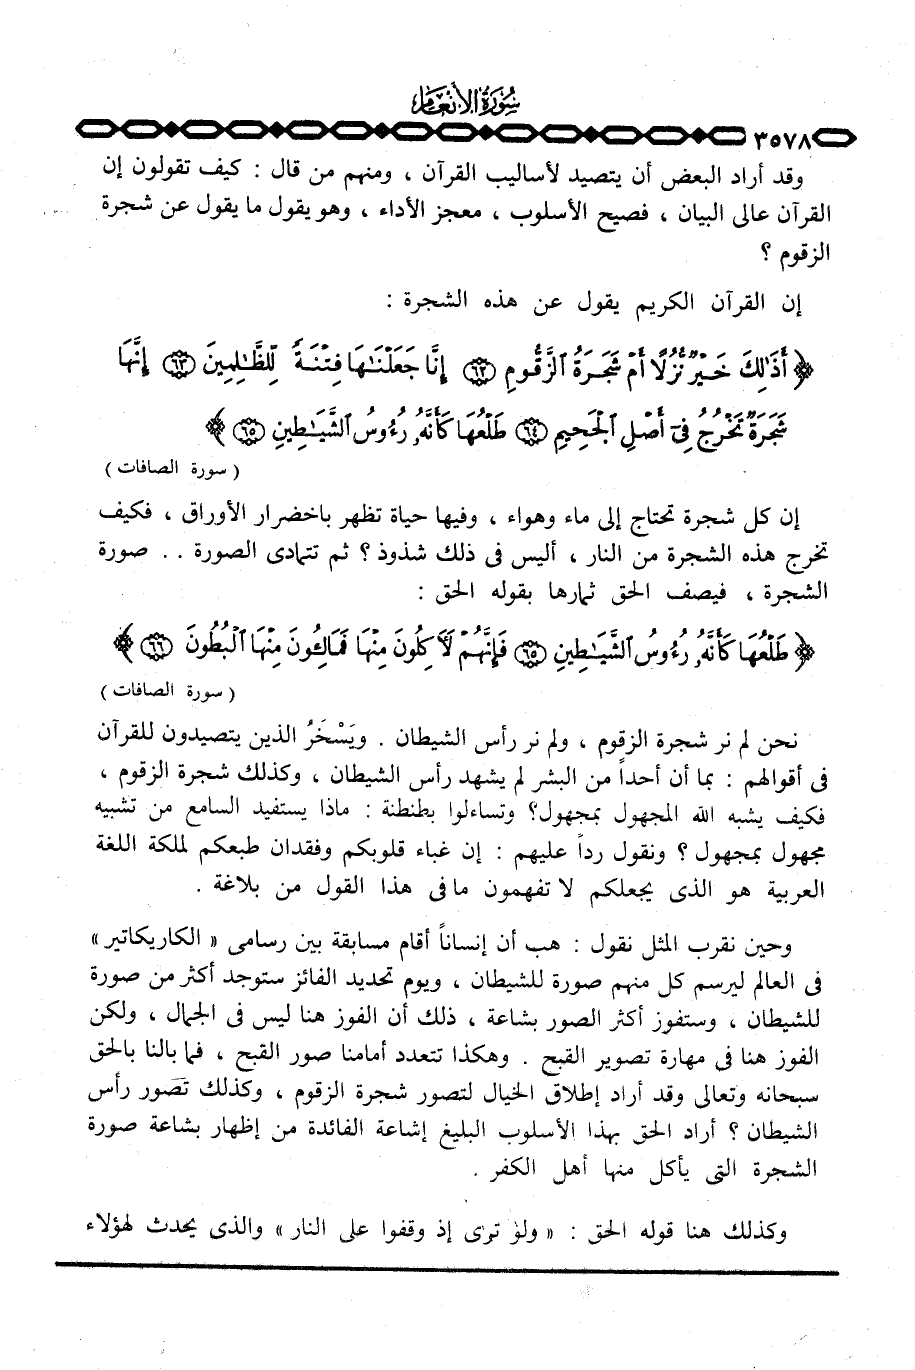 سورة الأنعام
٣٥٧٨
وقد أراد البعض أن يتصيد لأساليب القرآن ، ومنهم من قال : كيف تقولون إن
القرآن عالى البيان ، فصيح الأسلوب ، معجز الأداء ، وهو يقول ما يقول عن شجرة
الزقوم ؟
إن القرآن الكريم يقول عن هذه الشجرة :
﴿ أَذَٰلِكَ خَيْرٌ نُّزُلًا أَمْ شَجَرَةُ الزَّقُّومِ ﴿٦٢﴾ إِنَّا جَعَلْنَٰهَا فِتْنَةً لِّلظَّٰلِمِينَ ﴿٦٣﴾ إِنَّهَا
شَجَرَةٌ تَخْرُجُ فِىٓ أَصْلِ الْجَحِيمِ ﴿٦٤﴾ طَلْعُهَا كَأَنَّهُۥ رُءُوسُ الشَّيَٰطِينِ ﴿٦٥﴾ ﴾
( سورة الصافات )
إن كل شجرة تحتاج إلى ماء وهواء ، وفيها حياة تظهر باخضرار الأوراق ، فكيف
تخرج هذه الشجرة من النار ، أليس فى ذلك شذوذ ؟ ثم تتمادى الصورة . . صورة
الشجرة ، فيصف الحق ثمارها بقوله الحق :
﴿ طَلْعُهَا كَأَنَّهُۥ رُءُوسُ الشَّيَٰطِينِ ﴿٦٥﴾ فَإِنَّهُمْ لَأَٓكِلُونَ مِنْهَا فَمَالِـُٔونَ مِنْهَا الْبُطُونَ ﴿٦٦﴾ ﴾
( سورة الصافات )
نحن لم نر شجرة الزقوم ، ولم نر رأس الشيطان . ويَسْخَرُ الذين يتصيدون للقرآن
فى أقوالهم : بما أن أحداً من البشر لم يشهد رأس الشيطان ، وكذلك شجرة الزقوم ،
فكيف يشبه الله المجهول بمجهول؟ وتساءلوا بطنطنة : ماذا يستفيد السامع من تشبيه
مجهول بمجهول ؟ ونقول رداً عليهم : إن غباء قلوبكم وفقدان طبعكم لملكة اللغة
العربية هو الذى يجعلكم لا تفهمون ما فى هذا القول من بلاغة .
وحين نقرب المثل نقول : هب أن إنساناً أقام مسابقة بين رسامى « الكاريكاتير »
فى العالم ليرسم كل منهم صورة للشيطان ، ويوم تحديد الفائز ستوجد أكثر من صورة
للشيطان ، وستفوز أكثر الصور بشاعة ، ذلك أن الفوز هنا ليس فى الجمال ، ولكن
الفوز هنا فى مهارة تصوير القبح . وهكذا تتعدد أمامنا صور القبح ، فما بالنا بالحق
سبحانه وتعالى وقد أراد إطلاق الخيال لتصور شجرة الزقوم ، وكذلك تصور رأس
الشيطان ؟ أراد الحق بهذا الأسلوب البليغ إشاعة الفائدة من إظهار بشاعة صورة
الشجرة التى يأكل منها أهل الكفر .
وكذلك هنا قوله الحق : « ولو ترى إذ وقفوا على النار » والذى يحدث لهؤلاء